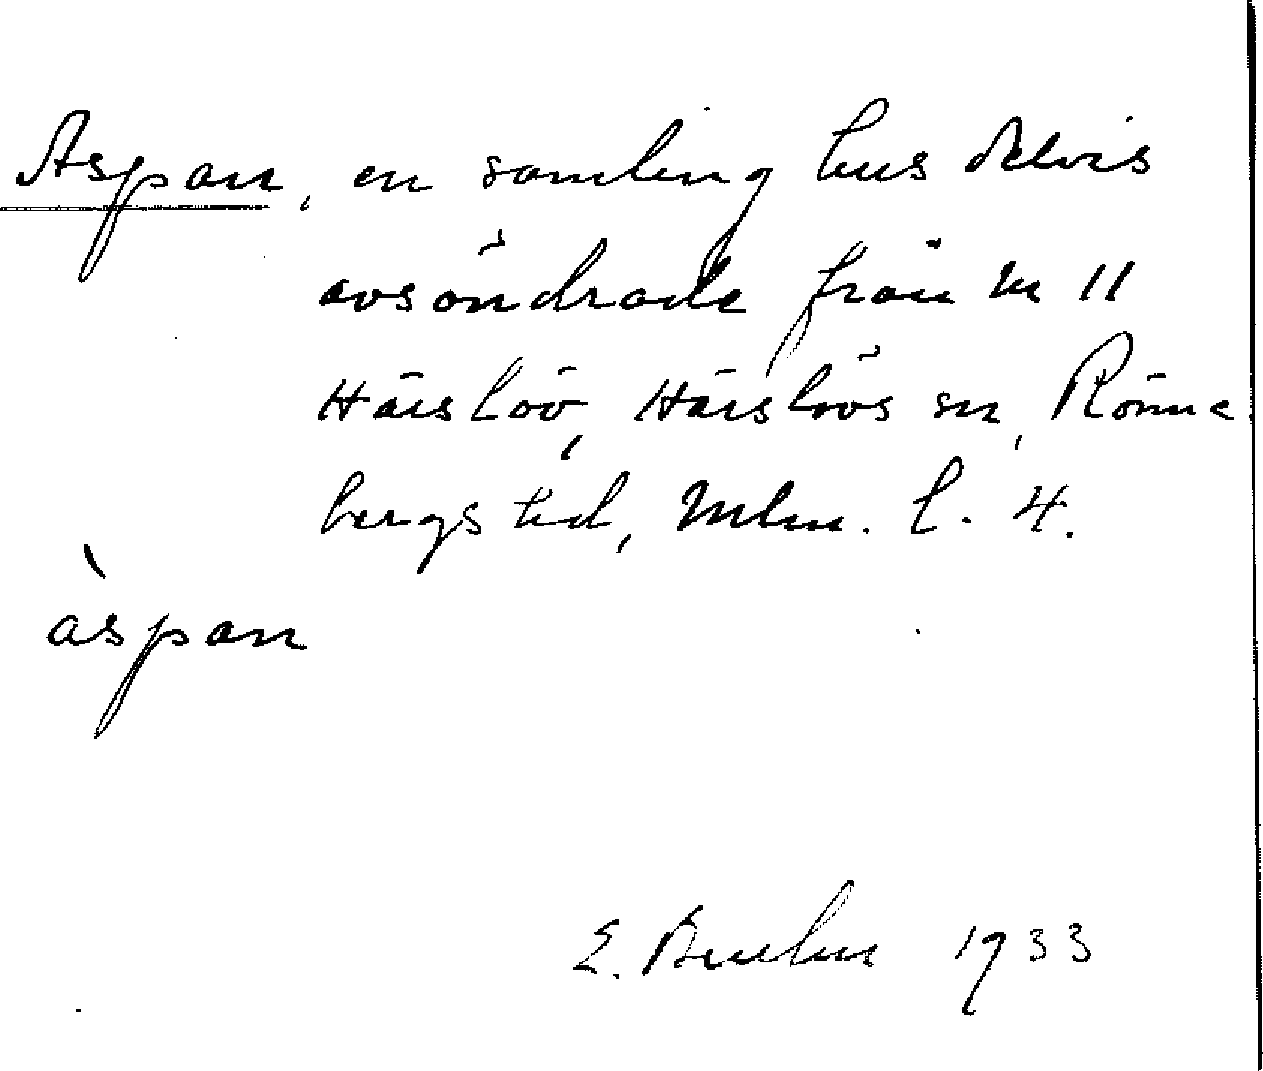 Aspan, en samling hus delvis
avsöndrade från n:r 11
Härslöv, Härslövs sn, Rönne
bergs hd, Mlm. l. 4.
àspan
E. 1933